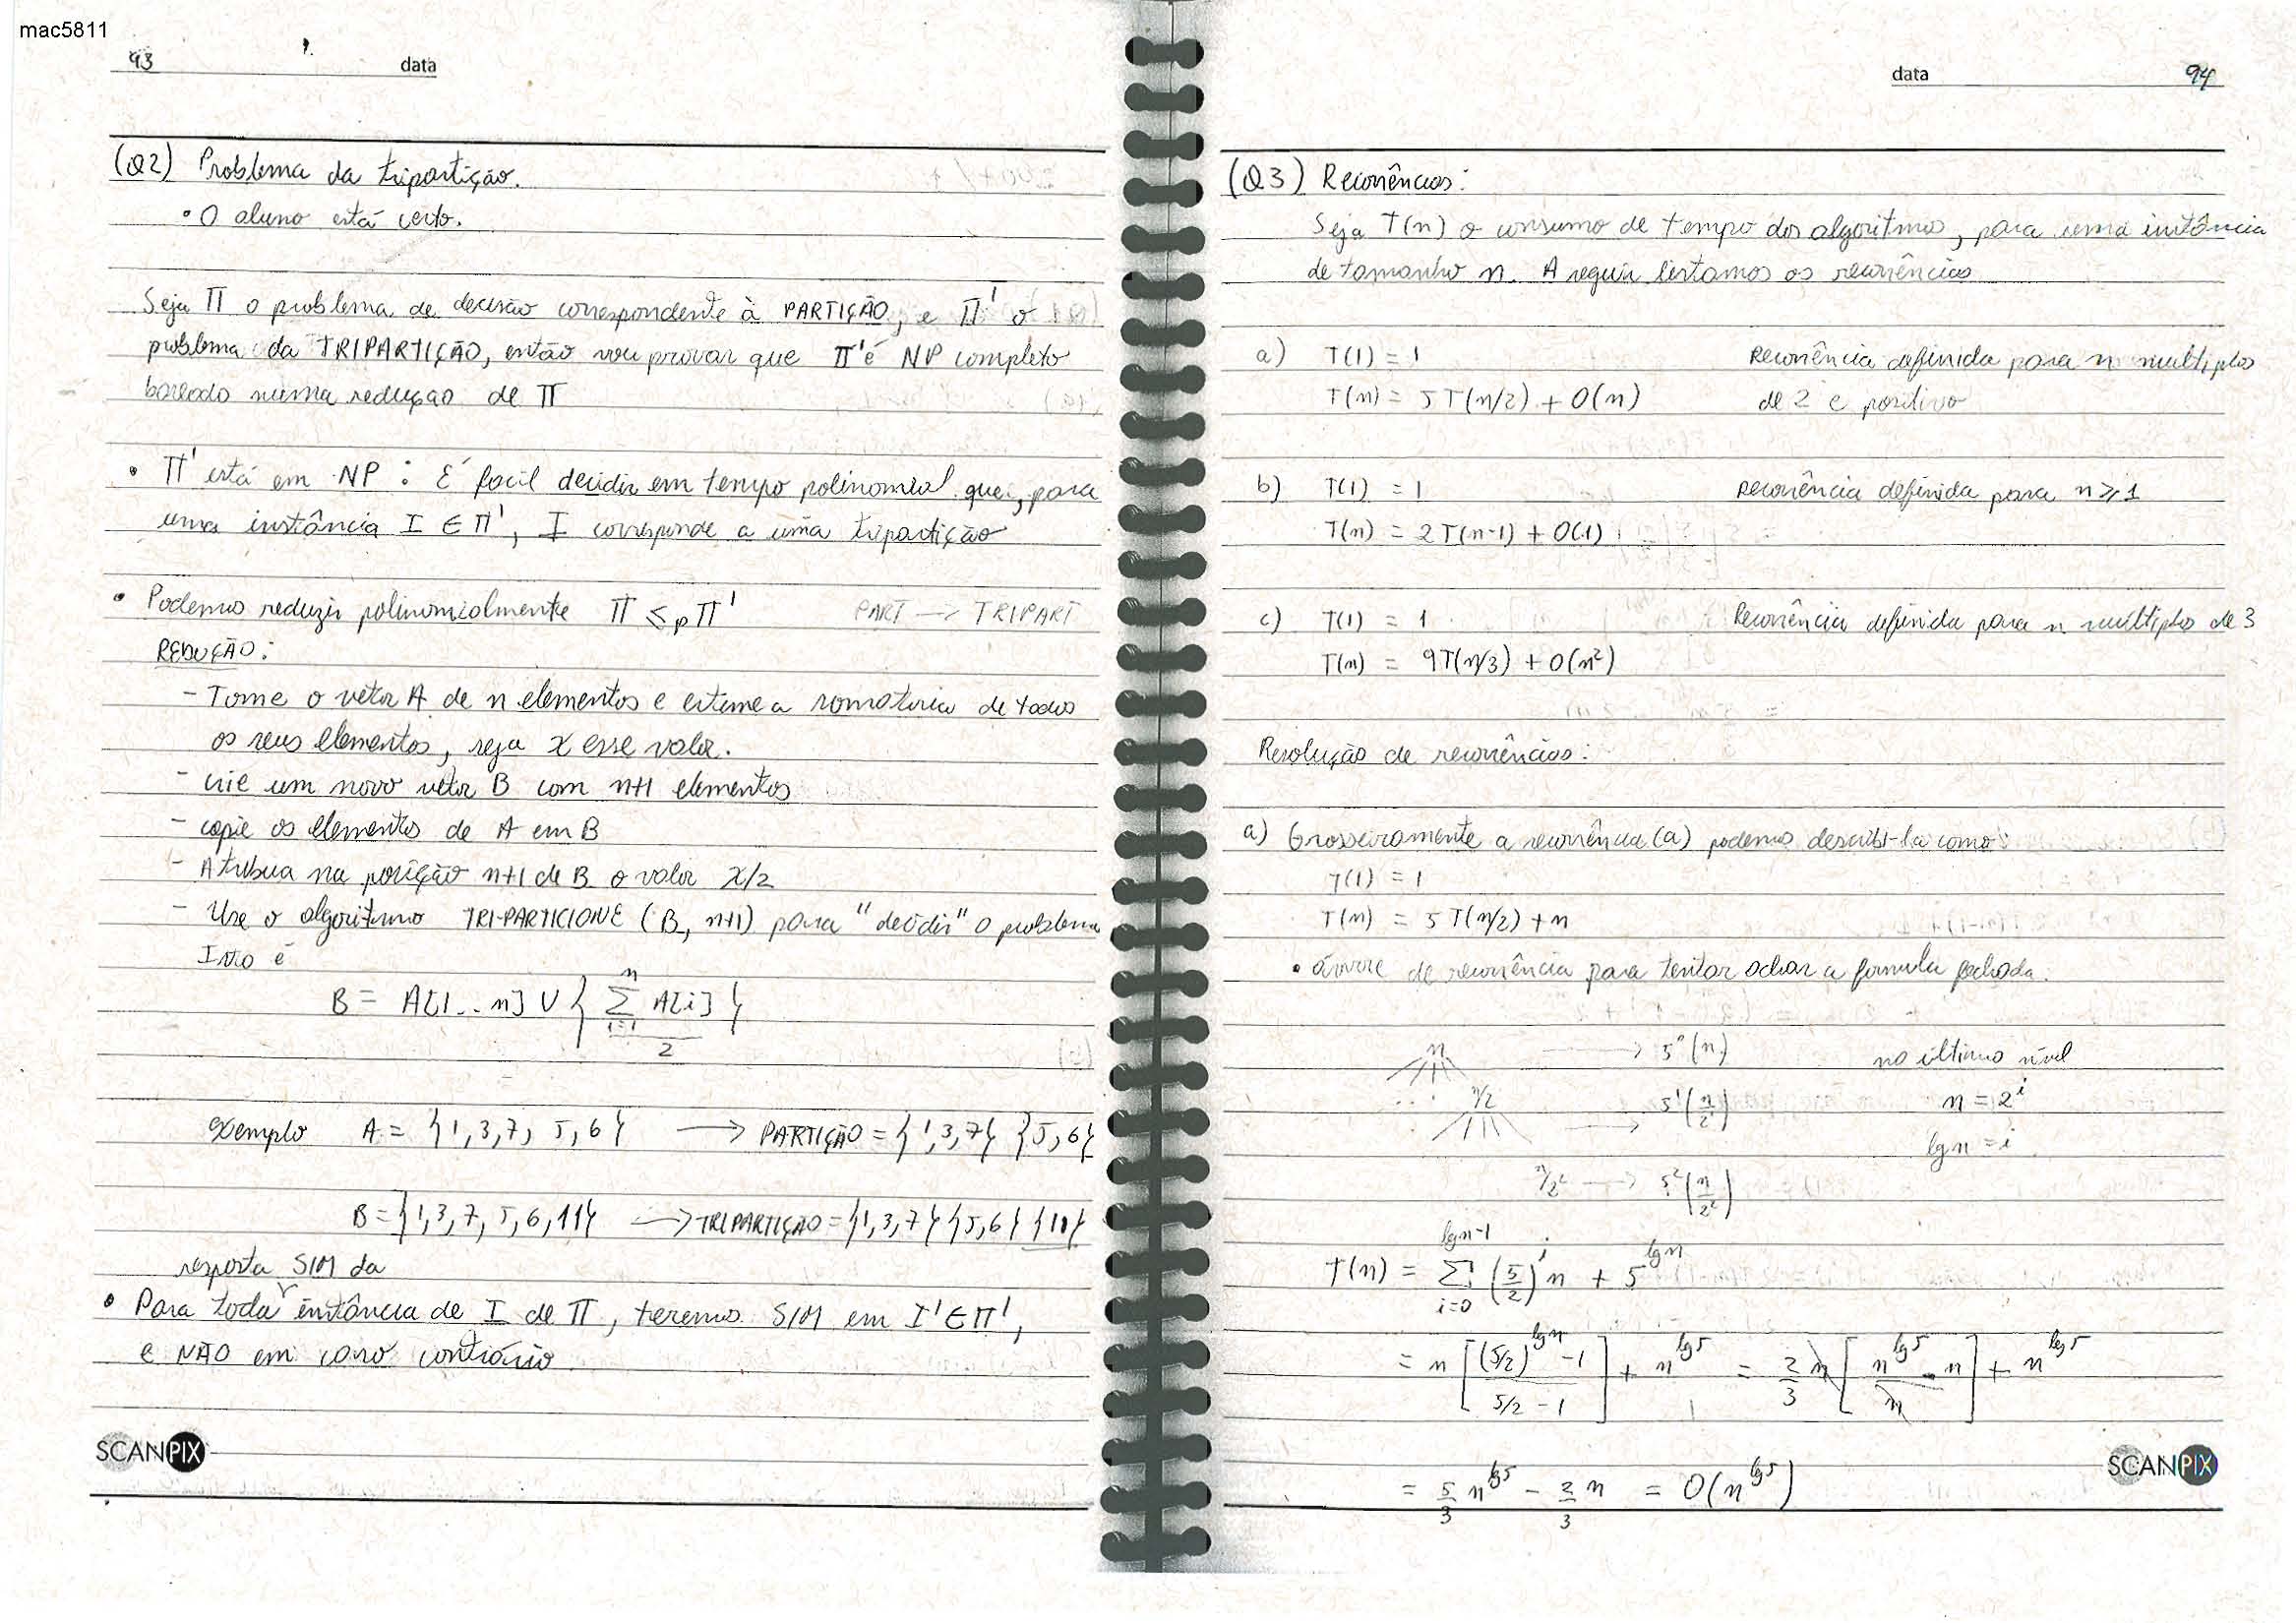 mac5811
93 data
(Q2) Problema da tripartição.
• O aluno está certo.
Seja Π o problema de decisão correspondente à PARTIÇÃO, e Π' o
problema da TRIPARTIÇÃO, então vou provar que Π' é NP completo
baseado numa redução de Π
• Π' está em NP : É facil decidir em tempo polinomial que, para
uma instância I ∈ Π', I corresponde a uma tripartição
• Podemos reduzir polinomialmente Π ≤p Π' PART → TRIPART
REDUÇÃO:
- Tome o vetor A de n elementos e estime a somatoria de todos
os seus elementos, seja x esse valor.
- crie um novo vetor B com n+1 elementos
- copie os elementos de A em B
- Atribua na posição n+1 de B o valor x/2
- Use o algoritmo TRI-PARTICIONE (B, n+1) para "decidir" o problema
Isto é
B = A[1..n] ∪ { ∑_{i=1}^{n} A[i] / 2 }
exemplo A = {1,3,7, 5,6} → PARTIÇÃO = {1,3,7} {5,6}
B = {1,3,7, 5,6,11} → TRIPARTIÇÃO = {1,3,7} {5,6} {11}
resposta SIM da
• Para toda instância de I de Π, teremos SIM em I' ∈ Π',
e NÃO em caso contrário
SCANPIX
data 94
(Q3) Recorrências:
Seja T(n) o consumo de tempo dos algoritmos, para uma instância
de tamanho n. A seguir listamos as recorrências
a) T(1) = 1 Recorrência definida para n multiplos
T(n) = 5T(n/2) + O(n) de 2 e positivo
b) T(1) = 1 recorrência definida para n ≥ 1
T(n) = 2T(n-1) + O(1)
c) T(1) = 1 Recorrência definida para n múltiplo de 3
T(n) = 9T(n/3) + O(n²)
Resolução de recorrências:
a) Grosseiramente a recorrência (a) podemos descrevê-la como:
T(1) = 1
T(n) = 5T(n/2) + n
• árvore de recorrência para tentar achar a formula fechada.
n → 5⁰(n) no último nível
n/2 → 5¹(n/2) n = 2^i
lg n = i
n/2² → 5²(n/2²)
T(n) = ∑_{i=0}^{lg n-1} (5/2)^i n + 5^{lg n}
= n [ ((5/2)^{lg n} - 1) / (5/2 - 1) ] + n^{lg 5} = 2/3 n [ (n^{lg 5} - n) / n ] + n^{lg 5}
= 5/3 n^{lg 5} - 2/3 n = O(n^{lg 5})
SCANPIX